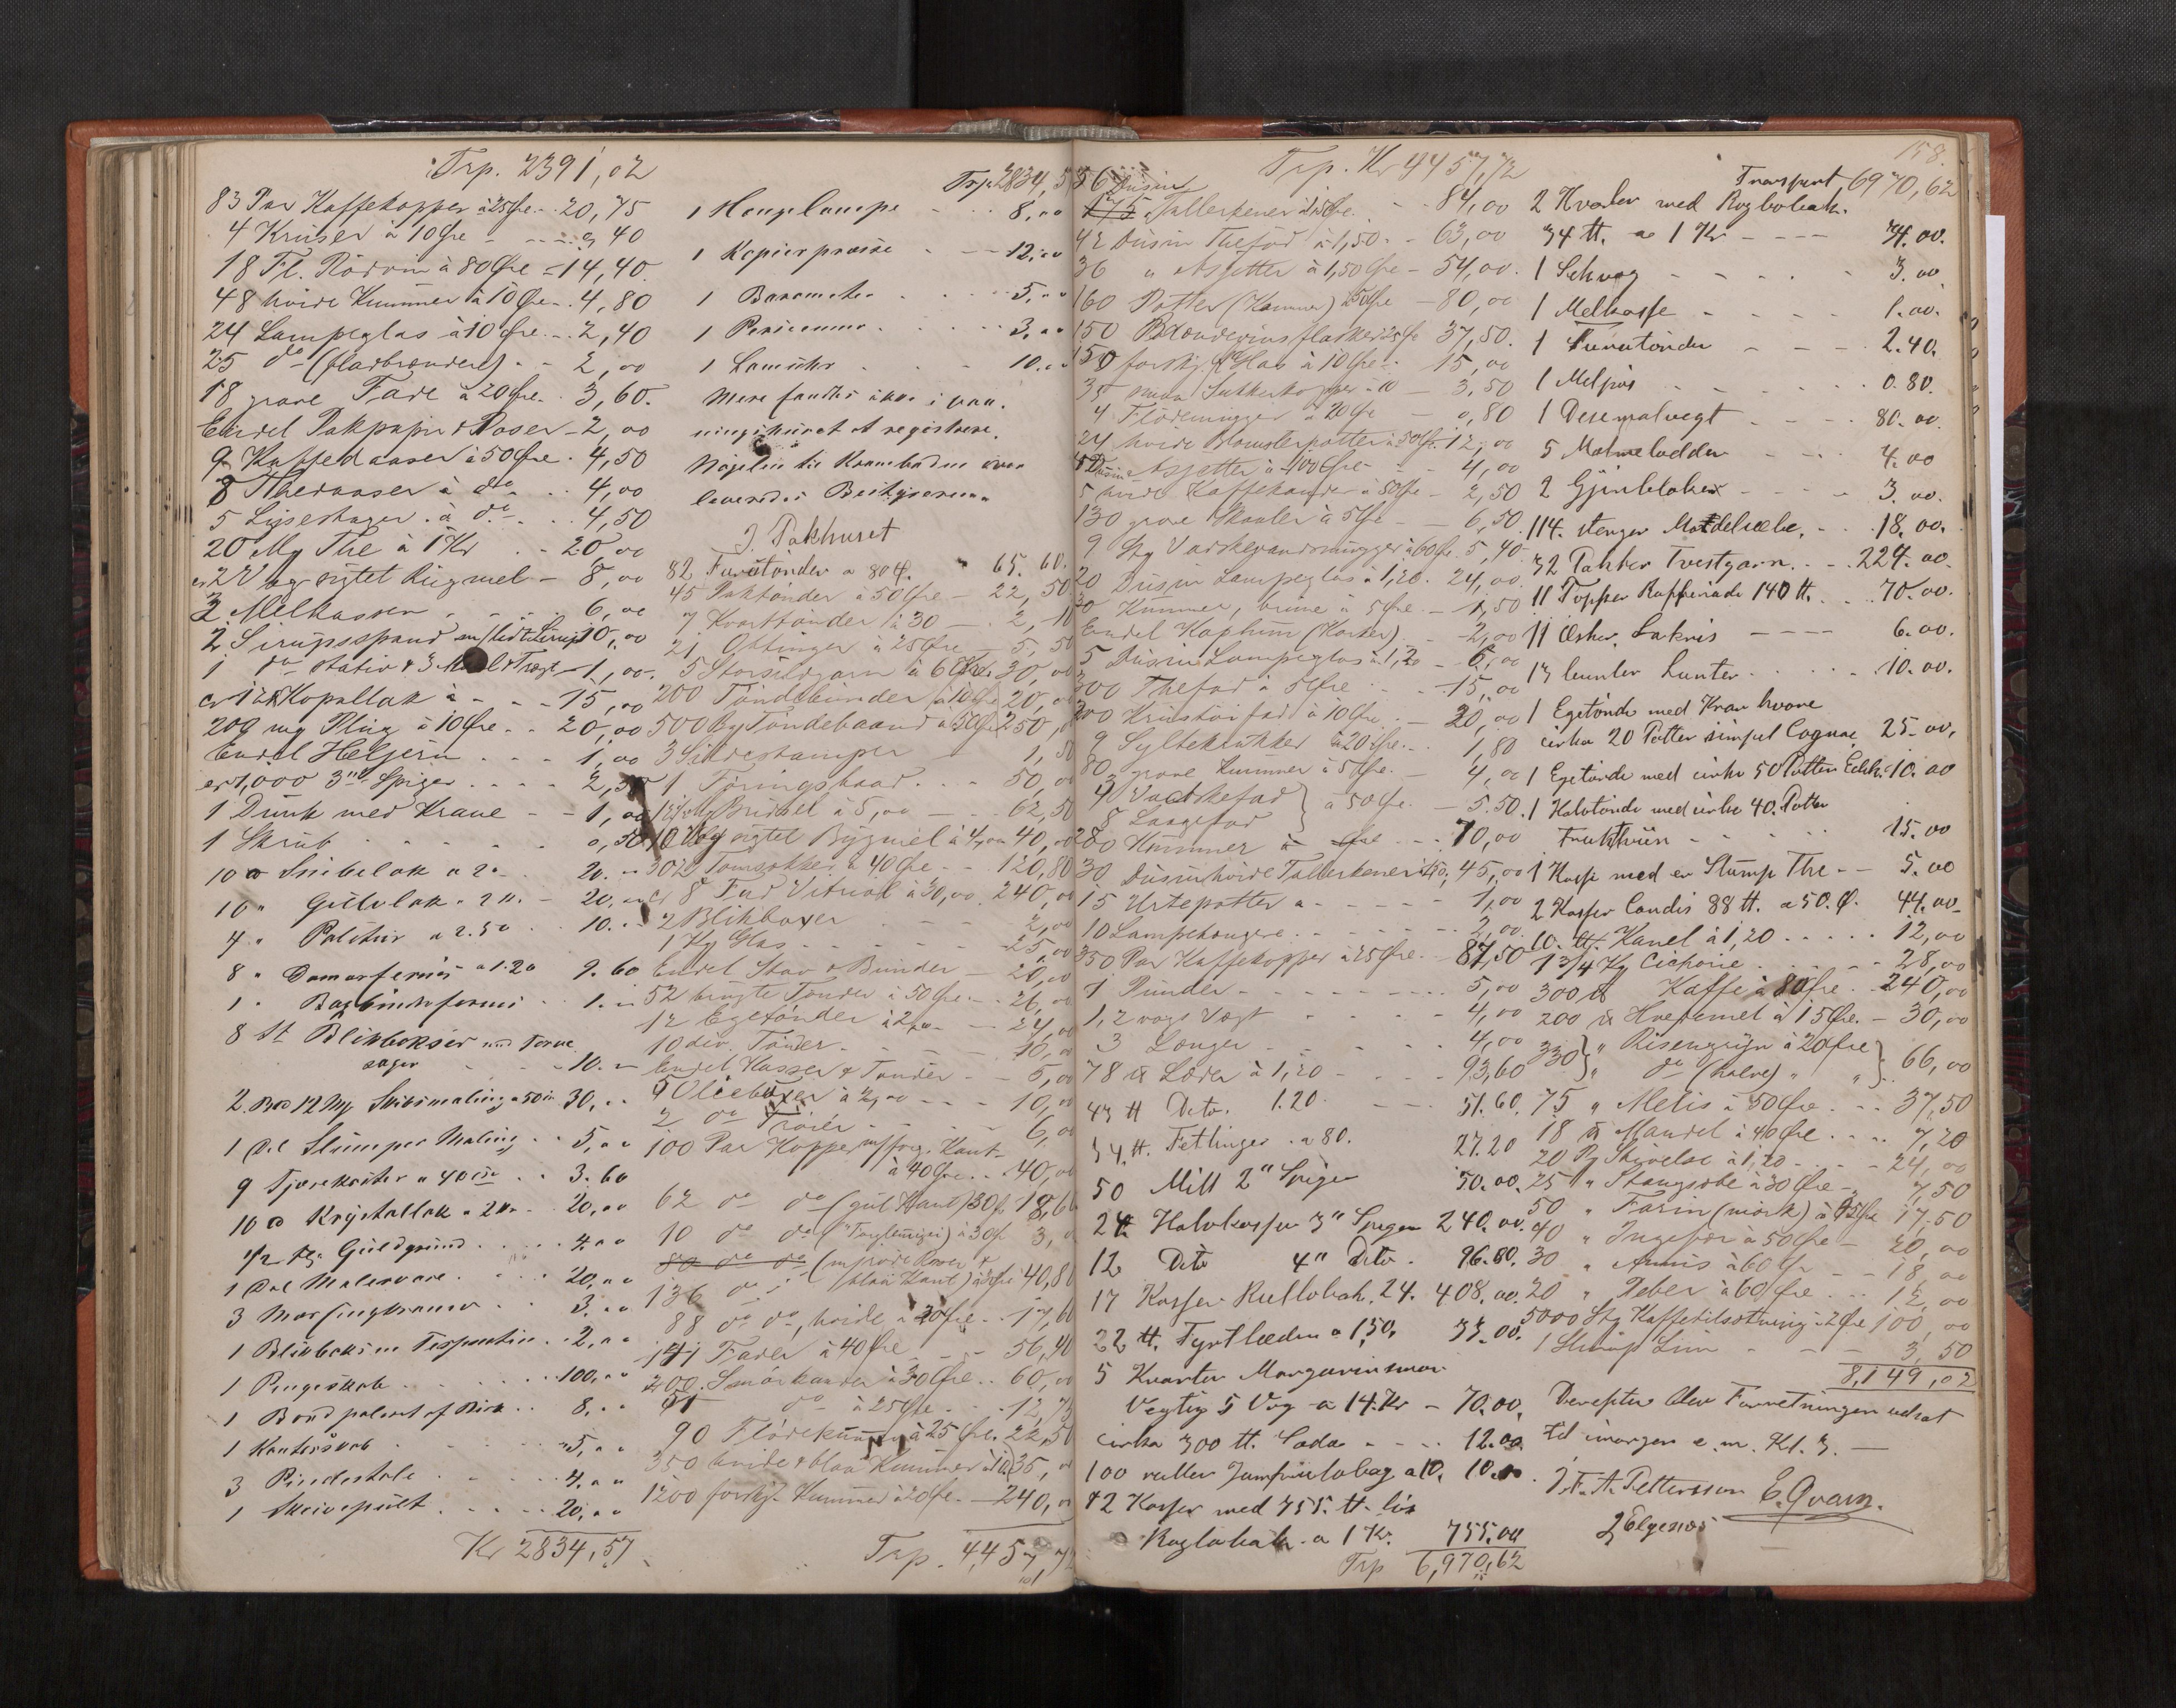 Trp. 2391,02
83 Par Kaffekopper à 25 Øre - 20,75
4 Kruser à 10 Øre - - - - 0,40
18 Fl. Rödvin à 80 Øre - 14,40
48 hvide Kummer à 10 Øre - 4,80
24 Lampeglas à 10 Øre - 2,40
25 do (fladbrændere) - - 2,00
18 grove Fade à 20 Øre - 3,60.
Endel Pakpapir & Poser - 2,00
9 Kaffedaaser à 50 Øre - 4,50
8 Thedaaser à do - - 4,00
5 Lysestager à do - - 4,50
20 My The à 1 Kr - - 20,00
2 Vog sigtet Rugmel - 8,00
3 Melkasser - - - 6,00
2 Sirupsspand m/ lidt Sirup 10,00
1 do stativ & 3 Maal & Tragt - 1,00.
Kopallak à - - 15,00
200 My Plug à 10 Øre - - 20,00
Endel Heljern - - - 1,00
1,000 3" Spiger - - - 2,50
1 Dunk med Krane - - 1,00
1 Skrub - - - - 0,50
10 Snibelak a 2 - 20. -
10 " Gulvlak a 2 - 20. -
4 " Politur a 2.50 - 10. -
8 " Damarfernis a 1.20 9.60
1 " - 1. -
8 St Blikbokser med Farve
sager - - 10. -
2 12 My Skibsmaling a 50 30, - -
1 Del Slumper Maling - - 5, - -
9 Tjærekoster a 40 - - 3.60
10 Krystallak a 2 - 20, - -
1/2 Kg Guldgrund - - - 4. - -
1 Del Malervare - - - 20, - -
3 Messingkraner - - 3. - -
1 Blikboks m Terpentin - 2, - -
1 Pengeskab - - - 100, - -
1 Bord paleret af Birk - - 8. - -
1 Kontorskab - - - 5, - -
3 Pindestole - - - 4, - -
1 Skrivepult - - - 20, - -
Kr 2834,57
Trp. 2834,5
1 Hængelampe - - 8,00
1 Kopierpresse - - 12,00
1 Barometer - - 5,00
1 - - 3,00
1 - - 10.00
Mere fandtes ikke i vaa-
ningshuset at registrere.
Nøglen til Krambuden blev
leveredes Bestyreren.
I. Pakhuset
82 Furutönder a 80 Ø. " 65.60.
45 Saktönder à 50 Øre - 22,50
7 Kvarttönder à 30 - - 2,10
21 Ottinger à 25 Øre - 5,50
5 Storsildgarn à 6 Kr. 30,00
200 Töndebunder à 10 Ø 20,00
500 Kg Töndebaand à 50 Øre 250,00
3 Sildestamper 1,50
1 Föringsbaad - - 50,00
à 5,00 - - 62,50
10 Vog sigtet Bygmel à 4,00 40,00
302 Tomsækker à 40 Øre - 120,80
8 Fad Vitriol à 30,00 . 240,00
2 Blikboxer - - - 2,00
1 Kg Glas - - - - 25,00
Endel Stav & Bunder - 20,00
52 brugte Tönder à 50 Øre - 26,00
12 Egetönder à 2,00 - - 24,00
10 div. Tönder - - - 10,00
Endel Kasser & Tönder - - 5,00
5 Olieboxer à 2,00 - - 10,00
2 do Tröier - - - 6,00
100 Par Kopper m/ forg. Kant -
à 40 Øre - - 40,00
62 do do (gul Kant) 30 Ø 18,60
10 do do ( ) à 30 Ø 3,0
80 do do (mindre Roser &
136 do " (blaa Kant) à 30 Øre 40,80
88 do do, hvide à 20 Øre - 17,60
141 Fader à 40 Øre - - 56,40
200 Smörkander à 30 Øre - 60,00
51 do à 25 Øre - - 12,75
90 Flödekummer à 25 Øre. 22,50
350 hvide & blaa Kummer à 10 35,00
1200 forskj. Kummer à 20 Øre - 240,00
Trp. 4457,72
Trp. Kr 4457,72
56 Dusin
175 Tallerkener à 1,50 Øre - - 84,00
42 Dusin Thefad à 1,50 - - 63,00
36 " Asjetter à 1,50 Øre - 54,00.
160 Potter (Kummer) à 50 Øre - 80,00
150 Brændevinsflasker à 25 Øre 37,50.
150 forskj. Glas à 10 Øre - 15,00
35 smaa Sukkerkopper à 10 - 3,50
4 Flödemugger à 20 Øre - 0,80
24 hvide Blomsterpotter à 50 Ør 12,00
4 Dusin Asjetter à 100 Øre - - 4,00
5 hvide Kaffekander à 50 Øre - 2,50
130 grove Skaaler à 5 Øre - - 6,50
9 Stk Vaskevandsmugger à 60 Ø. 5,40
20 Dusin Lampeglas à 1,20. 24,00
30 Kummer, brune à 5 Øre - 1,50
Endel Kaphum (Karker) - - 2,00
5 Dusin Lampeglas à 1,20 - 6,00
300 Thefad à 5 Øre - - 15,00
200 Krustöifad à 10 Øre - - 20,00
9 Syltekrukker à 20 Øre - 1,80
80 grove Kummer à 5 Øre - 4,00
3 Vadskefad } à 50 Øre - - 5.50
8 Laagefad
280 Kummer à Øre - - - 70,00
30 Dusin hvide Tallerkener à 1,50. 45,00
15 Urtepotter a - - - - 1,00
10 Lampekongere - - - - 2,00
350 Par Kaffekopper à 25 Øre - 87,50
1 Punder - - - - - 5,00
1, 2 vogs Vægt - - - 4,00
3 Længer - - - - 4,00
78 ℔ Læder à 1,20 - - - 93,60
43 ℔ Dito. 1.20 - - 51.60.
34 ℔. Fetlinger a 80. 27.20
50 Mill 2" Spiger 50.00.
24 Halvkasser 3" Spiger 240.00.
12 Dito 4" Dito - 96.00.
17 Kasser Rultobak. 24. 408.00.
22 ℔. Fyrtlæder a 1,50. 33.00.
5 Kvarter Margarinsmør
Vegtig 5 Vog a 14. Kr - 70.00.
cirka 300 ℔. Soda - - - - 12.00.
100 ruller Jomfrutobag a 10. 10.00.
12 Kasser med 755. ℔. lös
Rogtobak a 1 Kr. 755.00
Trp 6,970,62
158.
Transport 6970,62
2 Kvarter med Rogtobak.
34 ℔. a 1 Kr - - - 34.00.
1 Schvog - - - - - 3.00
1 Melkasse - - - - 1.00.
1 Furutönder - - - 2.40.
1 Melpös - - - - 0.80.
1 Desemalvegt - - - 80.00.
5 Malmelodder - - - 4.00
2 Gjenlokker - - - - 3.00.
114. stenger Mandelsæbe. - - 18.00.
32 Pakker Tvestgarn - - - 224.00.
11 Topper Raffinade 140 ℔. - - 70.00.
11 Æsker Lakris - - - - 6.00.
13 bunter Lunter - - - - 10.00.
1 Egetönde med Kran hvore
cirka 20 Potter simpel Cognac 25.00.
1 Egetönde med cirka 50 Potter Edik. 10.00
1 Halvtönde med cirka 40. Potter
Frukthvin - - - - 15.00
1 Kasse med en Slump The - - 5.00
2 Kasser Candis 88 ℔. a 50. Ø. 44.00.
10. ℔. Kanel à 1,20 - - - - 12,00
13/4 Kg Cichorie - - - - 28,00
300 ℔ Kaffe à 80 Øre - 240,00
200 ℔ Hvedemel à 15 Øre - 30,00
330 } " Risengryn à 20 Øre } 66,00
" do (halve) " "
75 " Melis à 50 Øre - - 37,50
18 ℔ Mandel à 40 Øre - - - 7,20
20 Pg Stivelse à 1,20 - - - 24,00
25 " Stangsæbe à 30 Øre - 7,50
50 " Farin (mörk) à 35 Øre 17,50
40 " Ingefær à 50 Øre - 20,00
30 " Annis à 60 Ør - - 18,00
20 " Peber à 60 Øre - - 12,00
5000 Stg Kaffetilsætning à 2 Øre 100,00
1 Slump Lim - - - 3,50
8,149,02
Derefter blev Forretningen udsat
til imorgen e.m. Kl. 3. -
J. F. A. Pettersson E. Qvam.
J Elgenæs